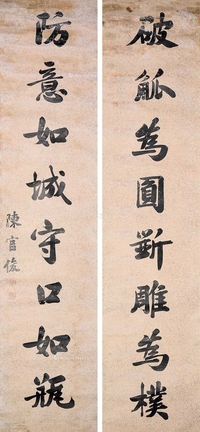 破觚為圓斲雕為樸
防意如城守口如瓶
陳官俊